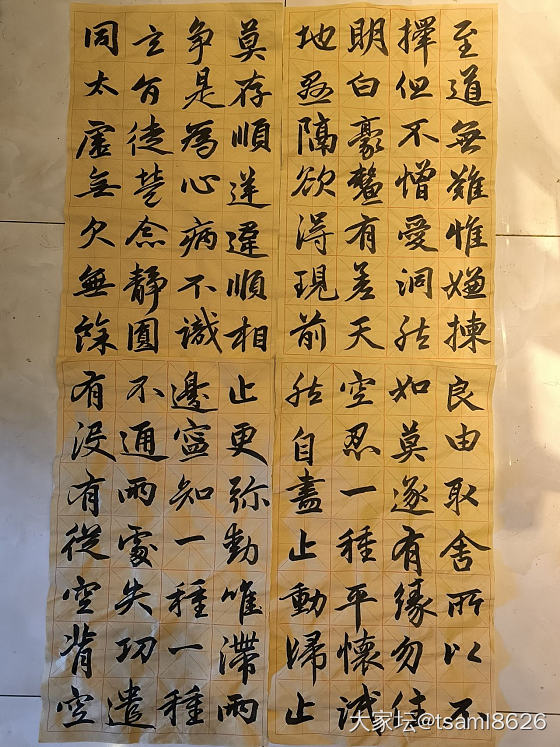 至道無難惟嫌揀
擇但不憎愛洞然
明白豪釐有差天
地懸隔欲得現前
莫存順逆違順相
争是為心病不識
玄旨徒勞念靜圓
同太虛無欠無餘
良由取舍所以不
如莫遂有緣勿住
空忍一種平懷泯
然自盡止動歸止
止更弥動唯滯兩
邊寧知一種一種
不通兩處失功遣
有没有從空背空
大家坛@tsaml8626